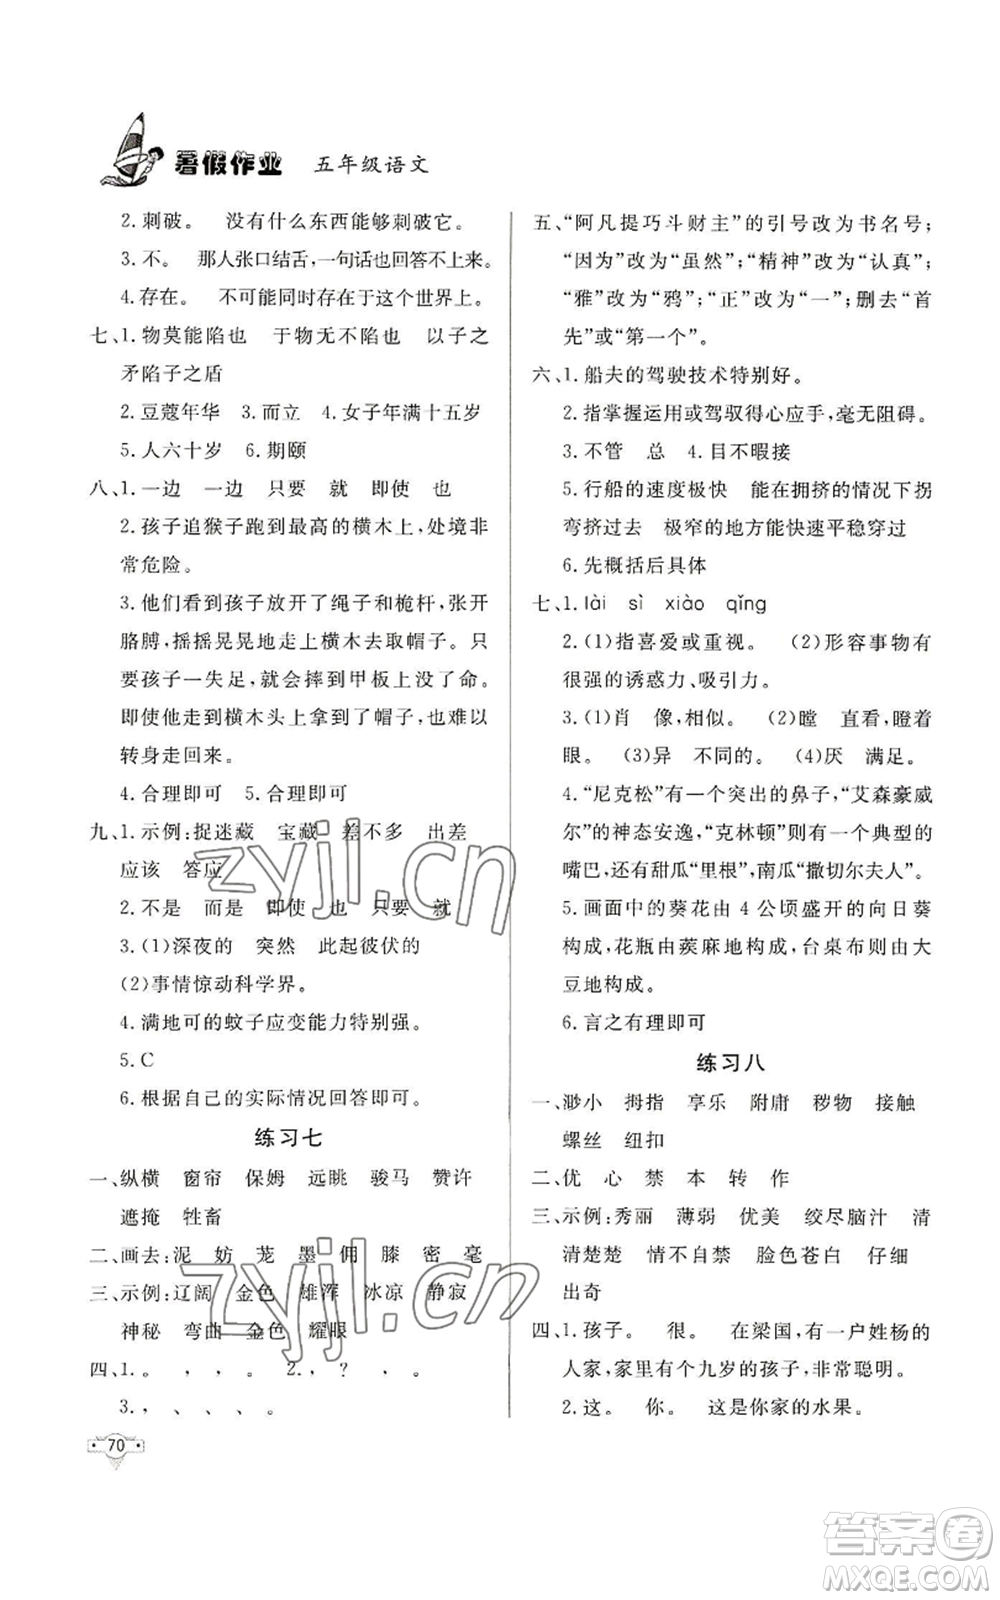 暑假作业 五年级语文
2.刺破。 没有什么东西能够刺破它。
3.不。 那人张口结舌,一句话也回答不上来。
4.存在。 不可能同时存在于这个世界上。
七、1.物莫能陷也 于物无不陷也 以子之
矛陷子之盾
2.豆蔻年华 3.而立 4.女子年满十五岁
5.人六十岁 6.期颐
八、1.一边 一边 只要 就 即使 也
2.孩子追猴子跑到最高的横木上,处境非
常危险。
3.他们看到孩子放开了绳子和桅杆,张开
胳膊,摇摇晃晃地走上横木去取帽子。只
要孩子一失足,就会摔到甲板上没了命。
即使他走到横木头上拿到了帽子,也难以
转身走回来。
4.合理即可 5.合理即可
九、1.示例:捉迷藏 宝藏 差不多 出差
应该 答应
2.不是 而是 即使 也 只有 就
3.(1)深夜的 突然 此起彼伏的
(2)事情惊动科学界。
4.满地可的蚊子应变能力特别强。
5.C
6.根据自己的实际情况回答即可。
练习七
一、纵横 窗帘 保姆 远眺 骏马 赞许
遮掩 牲畜
二、画去:泥 妨 茏 墨 佣 膝 密 毫
三、示例:辽阔 金色 雄浑 冰凉 静寂
神秘 弯曲 金色 耀眼
四、1.。 , , 。 2., ? , 。
3., 、 、 、 。
70
五、“阿凡提巧斗财主”的引号改为书名号;
“因为”改为“虽然”;“精神”改为“认真”;
“雅”改为“鸦”;“正”改为“一”;删去“首
先”或“第一个”。
六、1.船夫的驾驶技术特别好。
2.指掌握运用或驾驭得心应手,毫无阻碍。
3.不管 总 4.目不暇接
5.行船的速度极快 能在拥挤的情况下拐
弯挤过去 极窄的地方能快速平稳穿过
6.先概括后具体
七、1.lài sì xiào qǐng
2.(1)指喜爱或重视。 (2)形容事物有
很强的诱惑力、吸引力。
3.(1)肖 像,相似。 (2)瞠 直看,瞪着
眼。 (3)异 不同的。 (4)厌 满足。
4.“尼克松”有一个突出的鼻子,“艾森豪威
尔”的神态安逸,“克林顿”则有一个典型的
嘴巴,还有甜瓜“里根”,南瓜“撒切尔夫人”。
5.画面中的葵花由 4 公顷盛开的向日葵
构成,花瓶由蓖麻地构成,台桌布则由大
豆地构成。
6.言之有理即可
练习八
一、渺小 拇指 享乐 附庸 秽物 接触
螺丝 纽扣
二、优 心 禁 本 转 作
三、示例:秀丽 薄弱 优美 绞尽脑汁 清
清楚楚 情不自禁 脸色苍白 仔细
出奇
四、1.孩子。 很。 在梁国,有一户姓杨的
人家,家里有个九岁的孩子,非常聪明。
2.这。 你。 这是你家的水果。
zyjl.cn
zyjl.cn
答案圈
MXQE.COM